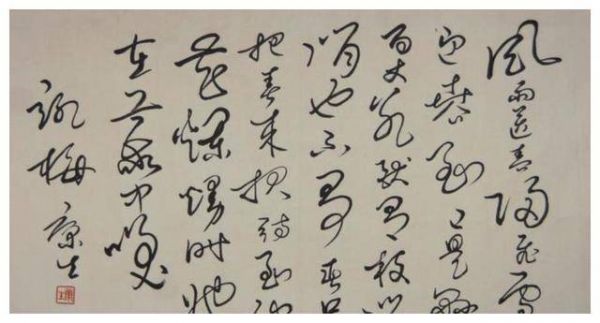 風雨送春归飛雪
迎春到已是懸
百丈冰猷有枝俏
俏也不争春只
把春来报待到山
花爛熳时她
在丛中笑
詠梅 康生